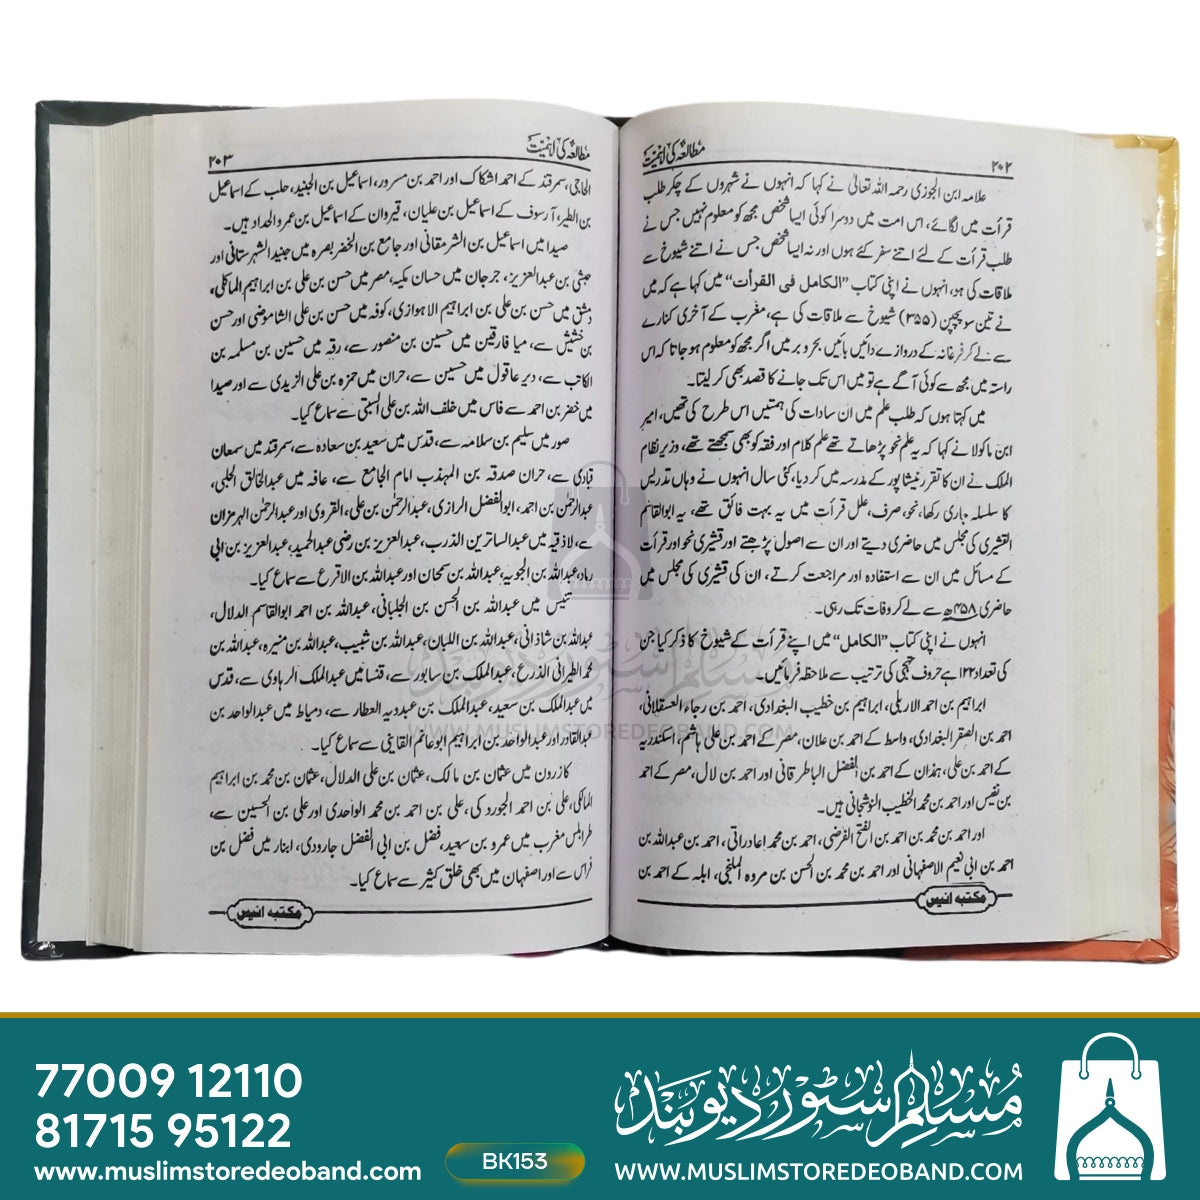 ۲۰۲
مطالعہ کی اہمیت
علامہ ابن الجوزی رحمہ اللہ تعالیٰ نے کہا کہ انہوں نے شہروں کے چکر طلب
قرأت میں لگائے، اس امت میں دوسرا کوئی ایسا شخص مجھ کو معلوم نہیں جس نے
طلب قرأت کے لئے اتنے سفر کئے ہوں اور نہ ایسا شخص جس نے اتنے شیوخ سے
ملاقات کی ہو، انہوں نے اپنی کتاب ”الکامل فی القرأت“ میں کہا ہے کہ میں
نے تین سو پچپن (۳۵۵) شیوخ سے ملاقات کی ہے، مغرب کے آخری کنارے
سے لے کر فرغانہ کے دروازے دائیں بائیں بحر و بر میں اگر مجھ کو معلوم ہو جاتا کہ اس
راستہ میں مجھ سے کوئی آگے ہے تو میں اس تک جانے کا قصد بھی کر لیتا۔
میں کہتا ہوں کہ طلب علم میں ان سادات کی ہمتیں اس طرح کی تھیں، امیر
ابن ماکولا نے کہا کہ یہ علم نحو پڑھاتے تھے علم کلام اور فقہ کو بھی سمجھتے تھے، وزیر نظام
الملک نے ان کا تقرر نیشاپور کے مدرسہ میں کر دیا، کئی سال انہوں نے وہاں تدریس
کا سلسلہ جاری رکھا، نحو، صرف، علل قرأت میں یہ بہت فائق تھے، یہ ابوالقاسم
القشیری کی مجلس میں حاضری دیتے اور ان سے اصول پڑھتے اور قشیری نحو اور قرأت
کے مسائل میں ان سے استفادہ اور مراجعت کرتے، ان کی قشیری کی مجلس میں
حاضری ۴۵۸ھ سے لے کر وفات تک رہی۔
انہوں نے اپنی کتاب ”الکامل“ میں اپنے قرأت کے شیوخ کا ذکر کیا جن
کی تعداد ۱۲۲ ہے حروف تہجی کی ترتیب سے ملاحظہ فرمائیں۔
ابراہیم بن احمد الاربلی، ابراہیم بن خطیب البغدادی، احمد بن رجاء العسقلانی،
احمد بن الصقر البغدادی، واسط کے احمد بن علان، مصر کے احمد بن علی ہاشم، اسکندریہ
کے احمد بن علی، ہمذان کے احمد بن الفضل الباطرقانی اور احمد بن لال، مصر کے احمد
بن نفیس اور احمد بن محمد الخطیب النوشجانی ہیں۔
اور احمد بن محمد بن احمد بن الفتح الفرضی، احمد بن محمد، احمد بن عبداللہ بن
احمد بن ابی نعیم الاصفہانی اور احمد بن محمد بن الحسن بن مردہ الملنجی، ابلہ کے احمد بن
مکتبہ انیس
۲۰۳
مطالعہ کی اہمیت
الحاجی، سمرقند کے احمد اشکاک اور احمد بن مسرور، اسماعیل بن الجنید، حلب کے اسماعیل
بن الطیر، آرسوف کے اسماعیل بن علیان، قیروان کے اسماعیل بن عمرو الحداد ہیں۔
صیدا میں اسماعیل بن الشرمقانی اور جامع بن الخضر بصرہ میں جنید الشہرستانی اور
حبشی بن عبدالعزیز، جرجان میں حسان مکیہ، مصر میں حسن بن علی بن ابراہیم المالکی،
دمشق میں حسن بن علی بن ابراہیم الاہوازی، کوفہ میں حسن بن علی الشاموضی اور حسن
بن خشیش سے، میا فارقین میں حسین بن منصور سے، رقہ میں حسین بن مسلمہ بن
الکاتب سے، دیر عاقول میں حسین سے، حران میں حمزہ بن علی الزیدی سے اور صیدا
میں خضر بن احمد سے فاس میں خلف اللہ بن علی السبتی سے سماع کیا۔
صور میں سلیم بن سلامہ سے، قدس میں سعید بن سعادہ سے، سمرقند میں سمعان
قبادی سے، حران صدقہ بن المہذب امام الجامع سے، عافہ میں عبدالخالق الحلبی،
عبدالرحمٰن بن احمد، ابوالفضل الرازی، عبدالرحمٰن بن علی، القروی اور عبدالرحمٰن الہرمزان
سے، لاذقیہ میں عبدالساتر بن الذرب، عبدالعزیز بن رضی عبدالحمید، عبدالعزیز بن ابی
رماد، عبداللہ بن الجویہ، عبداللہ بن سمحان اور عبداللہ بن الاقرع سے سماع کیا۔
تنیس میں عبداللہ بن الحسن بن الجلبانی، عبداللہ بن احمد ابوالقاسم الدلال،
عبداللہ بن شاذانی، عبداللہ بن اللبان، عبداللہ بن شبیب، عبداللہ بن منیرہ، عبداللہ بن
محمد الطیرائی الذرع، عبدالملک بن سابور سے، قنسا میں عبدالملک الرہاوی سے، قدس
میں عبدالملک بن سعید، عبدالملک بن عبدویہ العطار سے، دمیاط میں عبدالواحد بن
عبدالقادر اور عبدالواحد بن ابراہیم ابوغانم القاینی سے سماع کیا۔
کازرون میں عثمان بن مالک، عثمان بن علی الدلال، عثمان بن محمد بن ابراہیم
المالکی، علی بن احمد الجوردکی، علی بن احمد بن محمد الواحدی اور علی بن الحسین سے،
طرابلس مغرب میں عمرو بن سعید، فضل بن ابی الفضل جارودی، انبار میں فضل بن
فراس سے اور اصفہان میں بھی خلق کثیر سے سماع کیا۔
مکتبہ انیس
مسلم سٹور دیوبند
WWW.MUSLIMSTOREDEOBAND.COM
77009 12110
81715 95122
www.muslimstoredeoband.com
BK153
مسلم سٹور دیوبند
WWW.MUSLIMSTOREDEOBAND.COM